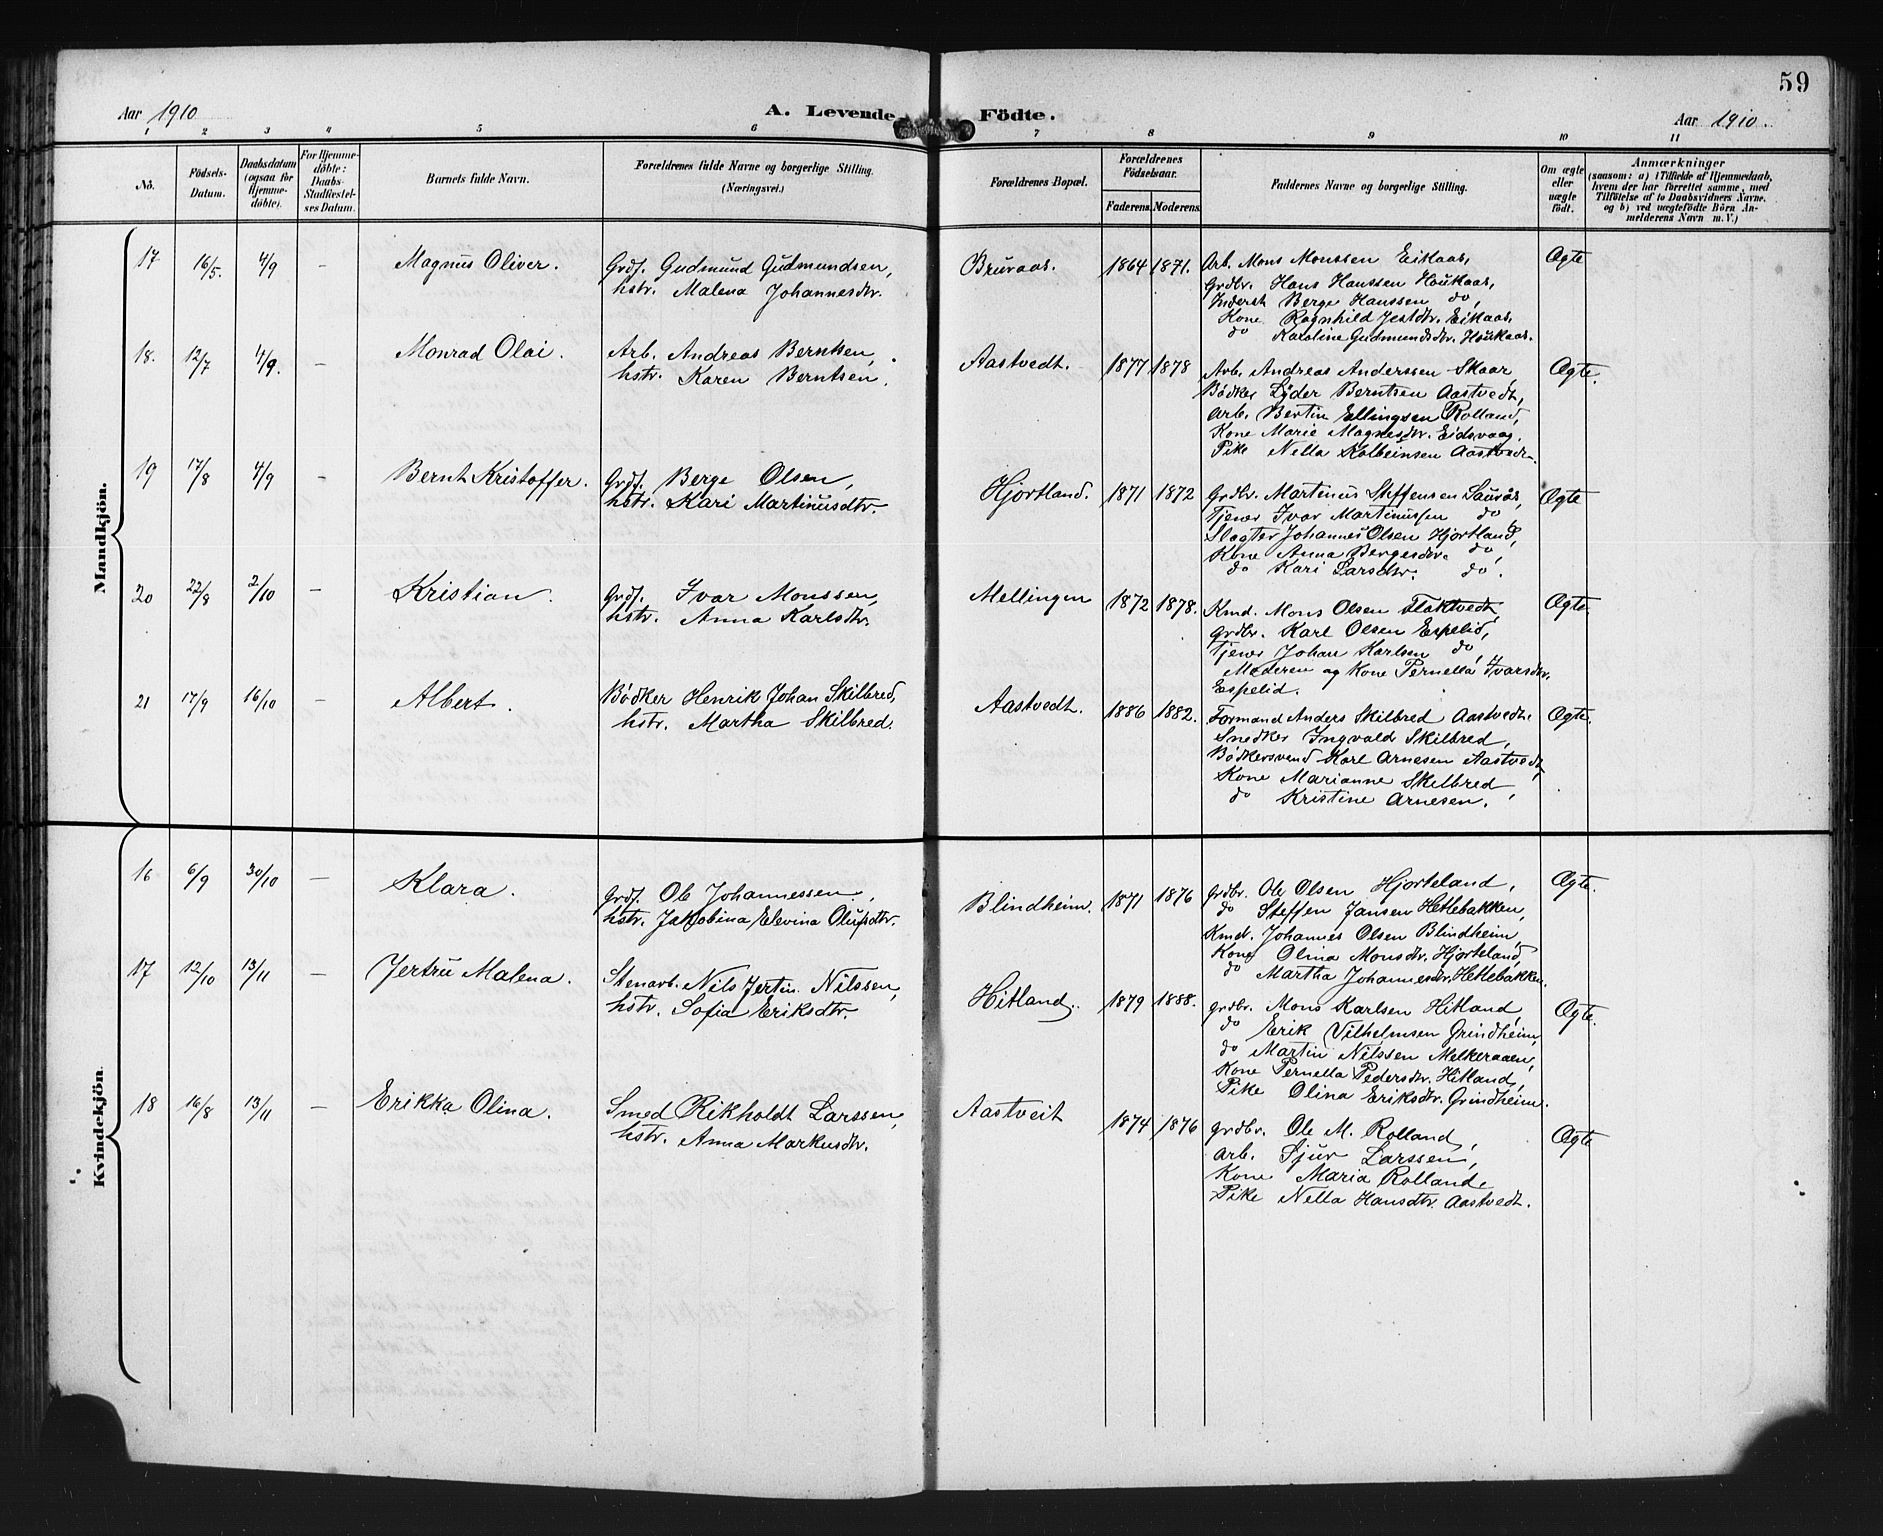 59
Aar 1910 A. Levende Födte. Aar 1910.
1 2 3 4 5 6 7 8 9 10 11
No.
Födsels-Datum.
Daabsdatum (ogsaa for Hjemme-döbte).
For Hjemme-döbte: Daabs-Stadfæstel-ses Datum.
Barnets fulde Navn.
Forældrenes fulde Navne og borgerlige Stilling.
(Næringsvei.)
Forældrenes Bopæl.
Forældrenes Födselsaar.
Faderens. Moderens.
Faddernes Navne og borgerlige Stilling.
Om ægte eller uægte födt.
Anmærkninger
(saasom: a) i Tilfælde af Hjemmedaab, hvem der har forrettet samme, med Tilföielse af to Daabsvidners Navne, og b) ved uægtefödte Börn An-melderens Navn m. V.)
Mandkjön.
17 16/5. 4/9 – Magnus Oliver. Grdf. Gudmund Gudmundsen, Bruraas. 1864 1871. Arb. Mons Monssen Eikaas, Ægte
hstr. Malena Johannesdtr. Grdbr. Hans Hanssen Houkaas,
Inderst Berge Hanssen do,
Kone Ragnhild Jestdtr. Eikaas,
do Karoline Gudmundsdtr. Houkaas.
18. 12/7 4/9. – Monrad Olai. Arb. Andreas Berntsen, Aastvedt. 1877 1878 Arb. Andreas Anderssen Skaar, Ægte.
hstr. Karen Berntsen. Bödker Lyder Berntsen Aastvedt,
Arb. Bertin Ellingsen Rolland,
Kone Marie Magnesdtr. Eidsvaag.
Pike Nella Kolbeinsen Aastvedt.
19 17/8 4/9 – Bernt Kristoffer. Grdf. Berge Olsen, Hjortland. 1871 1872 Grdbr. Martinus Steffensen Saurås, Ægte
hstr. Kari Martinusdtr. Tjener Ivar Martinussen do,
Slagter Johannes Olsen Hjortland,
Kone Anna Bergesdtr. do,
do Kari Larsdtr. do.
20 22/8 2/10 – Kristian. Grdf. Ivar Monssen, Mellingen 1872 1878. Kmd. Mons Olsen Flaktvedt, Ægte.
hstr. Anna Karlsdtr. Grdbr. Karl Olsen Espelid,
Tjener Johan Karlsen do,
Moderen og Kone Pernella Ivarsdtr.
Espelid.
21 17/9 16/10 – Albert. Bödker Henrik Johan Skilbred, Aastvedt. 1886 1882. Formand Anders Skilbred Aastvedt, Ægte.
hstr. Martha Skilbred. Snedker Ingvald Skilbred,
Bödkersvend Karl Arnesen Aastvedt,
Kone Marianne Skilbred,
do Kristine Arnesen.
Kvindekjön.
16 6/9 30/10 – Klara. Grdf. Ole Johannessen, Blindheim. 1871 1876 Grdbr. Ole Olsen Hjorteland, Ægte.
hstr. Jakobina Elevina Olufsdtr. do Steffen Jansen Hetlebakken,
Kmd. Johannes Olsen Blindheim,
Kone Olina Monsdtr. Hjorteland,
do Martha Johannesdtr. Hetlebakken.
17 12/10 13/11 – Jertru Malena. Stenarb. Nils Jertin Nilssen, Hitland. 1879 1888. Grdbr. Mons Karlsen Hitland, Ægte.
hstr. Sofia Eriksdtr. do Erik Vilhelmsen Grindheim,
do Martin Nilssen Melkeraaen,
Kone Pernella Pedersdtr. Hitland,
Pike Olina Eriksdtr. Grindheim.
18 16/8 13/11 – Erikka Olina. Smed Rikholdt Larssen, Aastveit 1874 1876 Grdbr. Ole M. Rolland, Ægte
hstr. Anna Markusdtr. Arb. Sjur Larssen,
Kone Maria Rolland,
Pike Nella Hansdtr. Aastvedt.